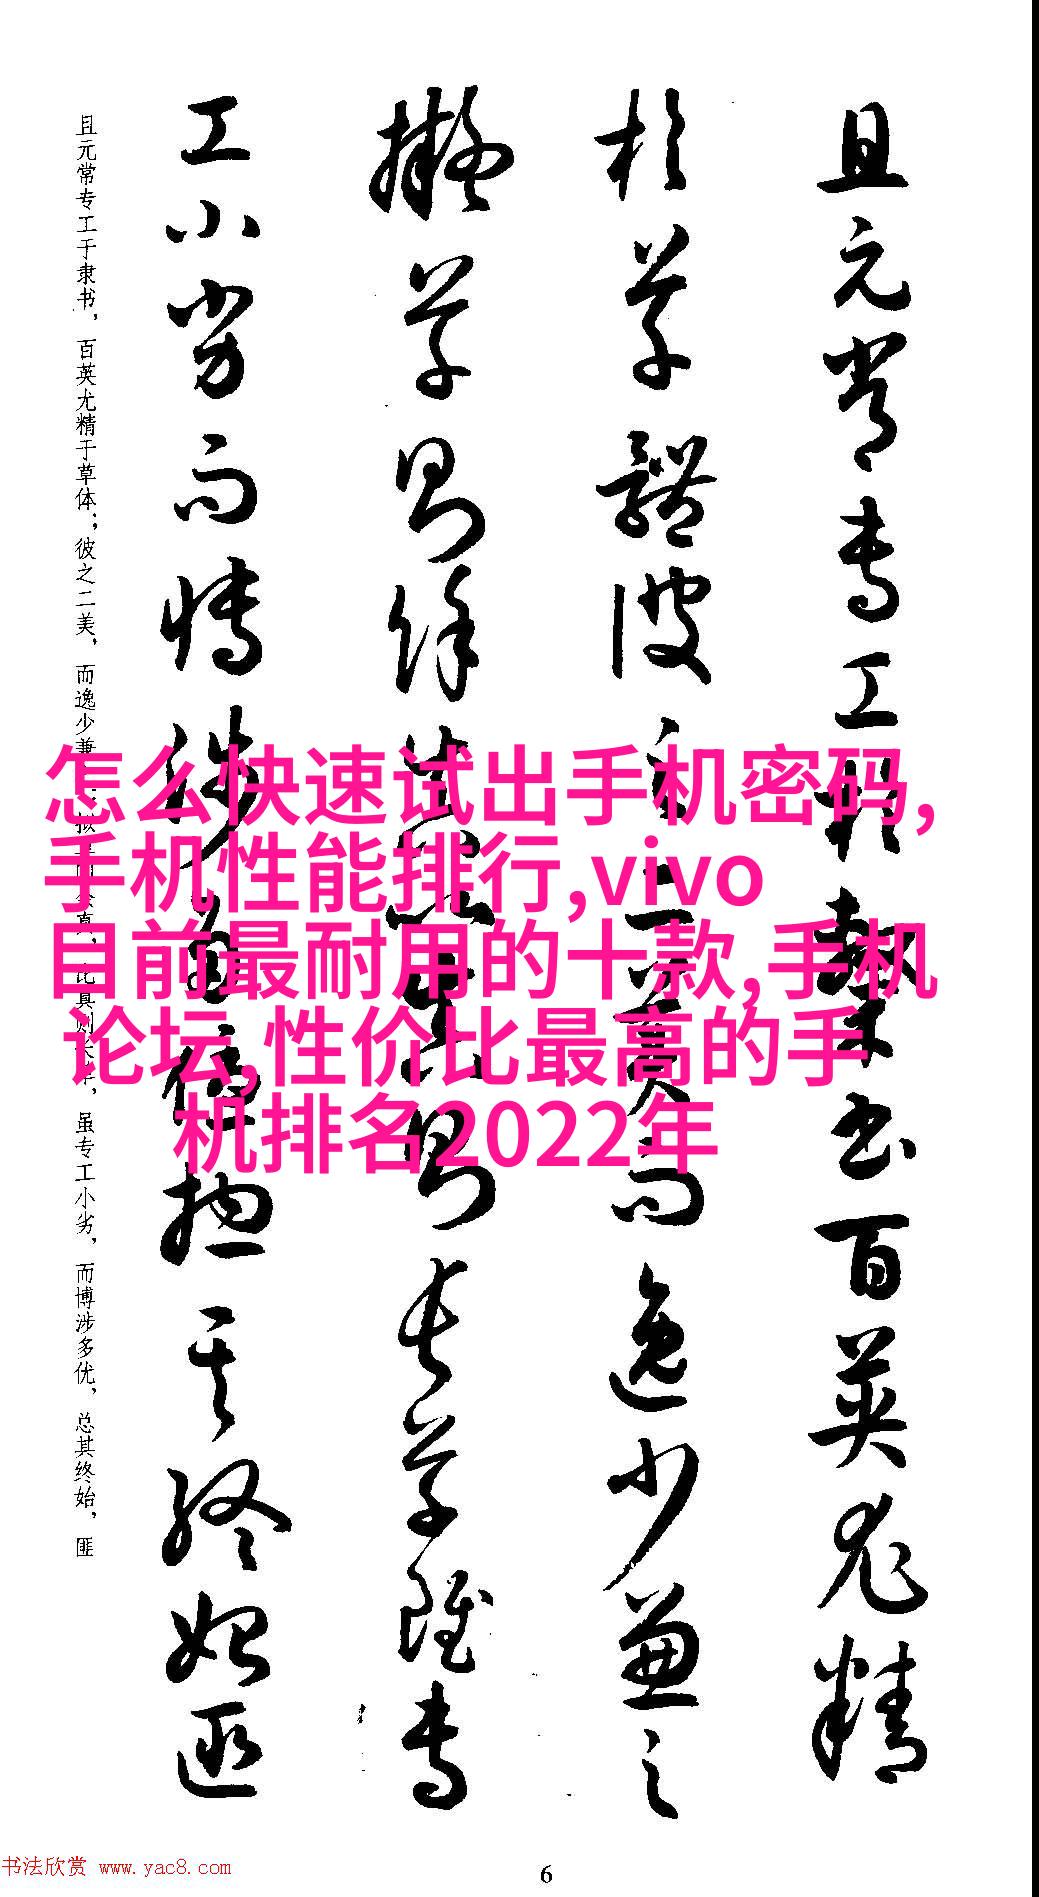 且元常專工於隸書百英尤精
於草體彼之二美而逸少兼之
擬草則餘真比真則長草雖專
工小劣而博涉多優揔其終始匪
且元常专工于隶书，百英尤精于草体；彼之二美，而逸少兼之。拟草则余真，比真则长草，虽专工小劣，而博涉多优，总其终始，匪
怎么快速试出手机密码,
手机性能排行,vivo
目前最耐用的十款,手机
论坛,性价比最高的手
机排名2022年
书法欣赏 www.yac8.com
6